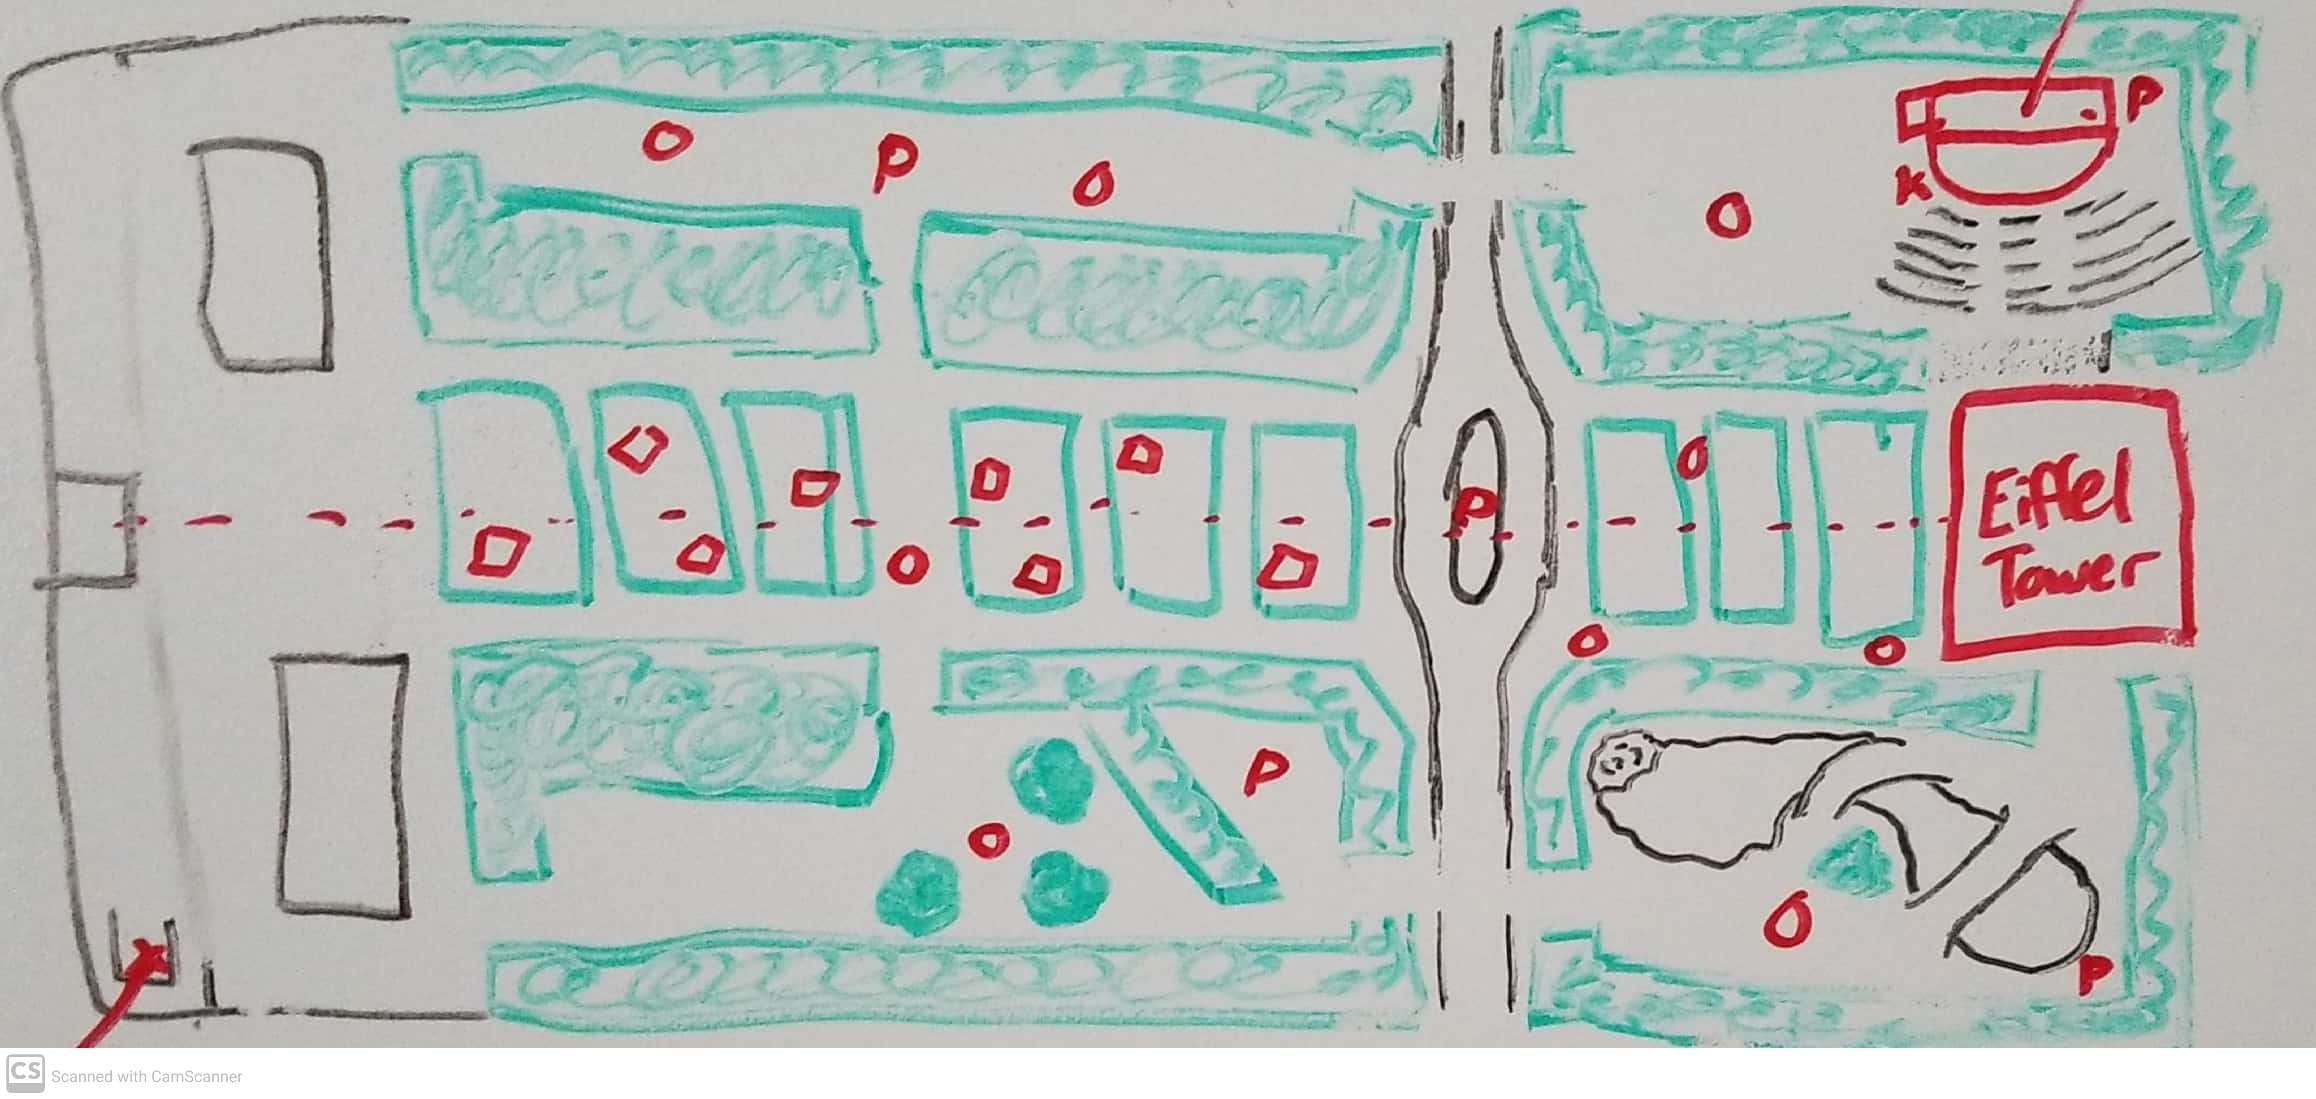 O
P
O
O
P
K
P
O
O
Eiffel
Tower
O
O
O
P
O
O
P
CS Scanned with CamScanner